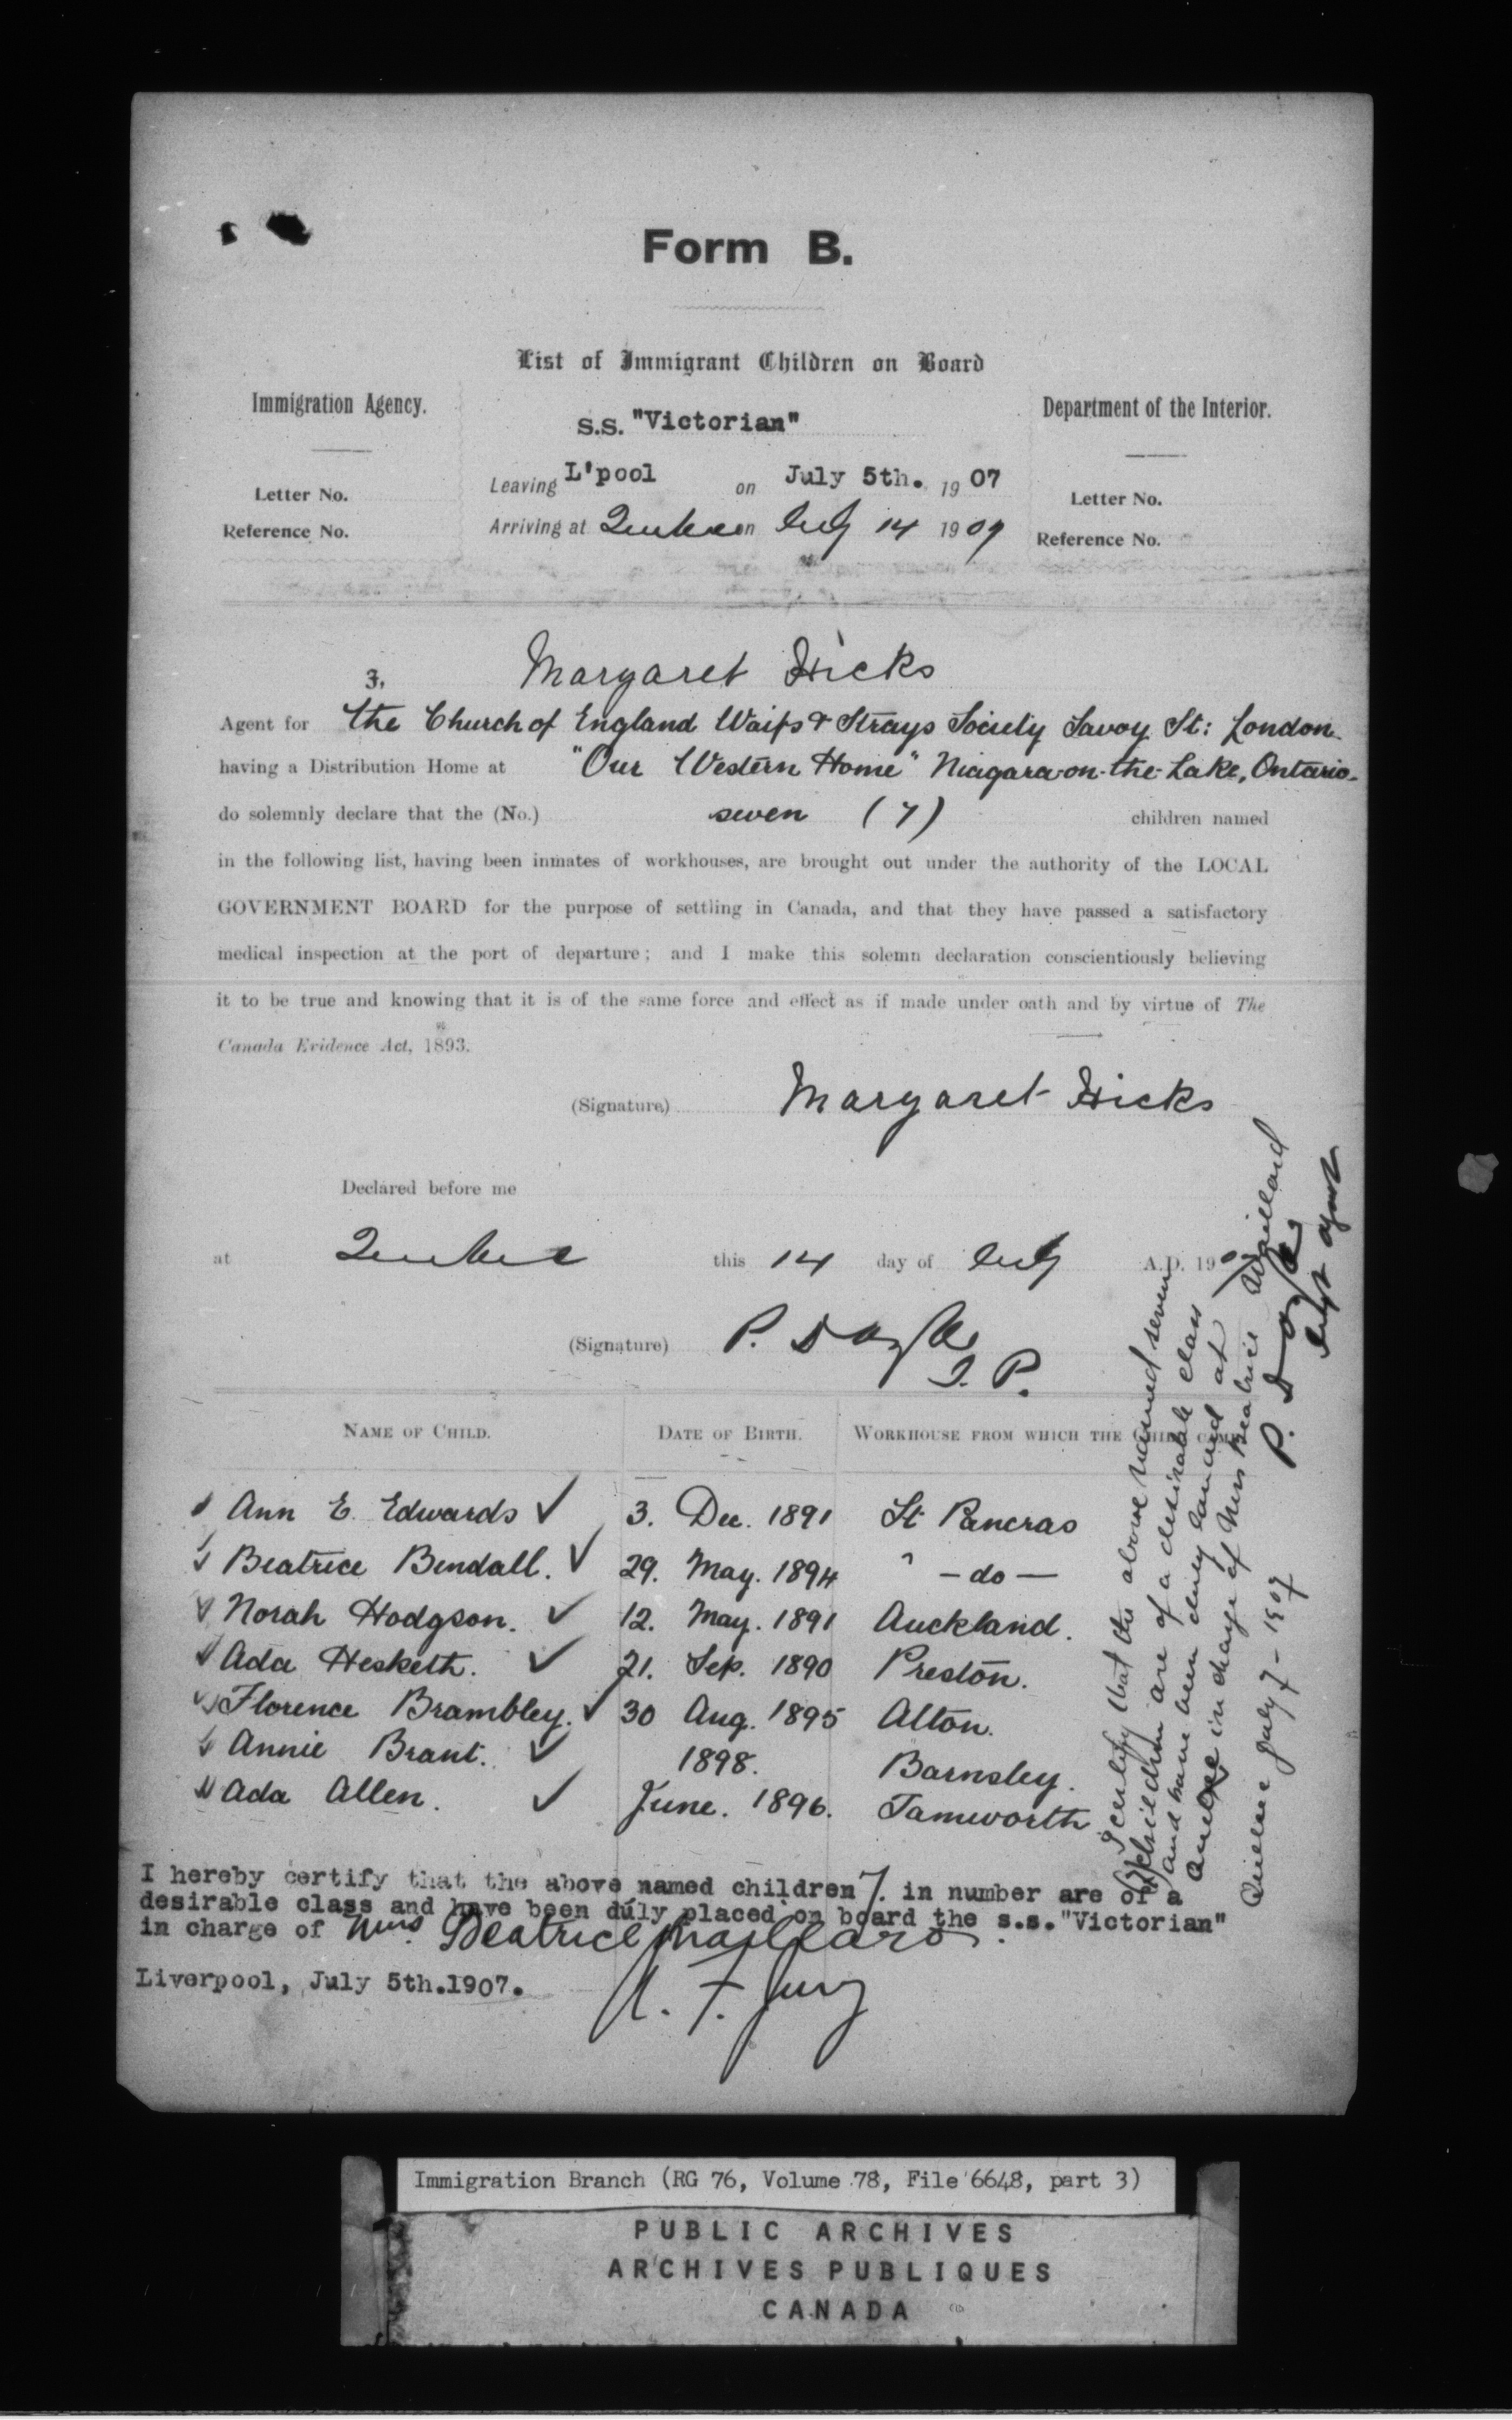 Form B.
List of Immigrant Children on Board
Immigration Agency.
Department of the Interior.
S.S. "Victorian"
Leaving L'pool on July 5th. 1907
Letter No.
Letter No.
Arriving at Quebec on July 14 1907
Reference No.
Reference No.
Margaret Hicks
Agent for the Church of England Waifs & Strays Society Savoy St: London.
having a Distribution Home at "Our Western Home" Niagara-on-the-Lake, Ontario.
do solemnly declare that the (No.) seven (7) children named
in the following list, having been inmates of workhouses, are brought out under the authority of the LOCAL
GOVERNMENT BOARD for the purpose of settling in Canada, and that they have passed a satisfactory
medical inspection at the port of departure; and I make this solemn declaration conscientiously believing
it to be true and knowing that it is of the same force and effect as if made under oath and by virtue of The
Canada Evidence Act, 1893.
(Signature) Margaret Hicks
Declared before me
at Quebec this 14 day of July A.D. 1907
(Signature) P. Doyle
J. P.
NAME OF CHILD. DATE OF BIRTH. WORKHOUSE FROM WHICH THE CHILD CAME
Ann E. Edwards ✓ 3. Dec. 1891 St Pancras
Beatrice Bendall. ✓ 29. May. 1894 " - do -
Norah Hodgson. ✓ 12. May. 1891 Auckland.
Ada Hesketh. ✓ 21. Sep. 1890 Preston.
Florence Brambley. ✓ 30 Aug. 1895 Alton.
Annie Brant. ✓ 1898. Barnsley.
Ada Allen. ✓ June. 1896. Tamworth
I hereby certify that the above named children 7. in number are of a
desirable class and have been duly placed on board the s.s. "Victorian"
in charge of Miss Beatrice Maillard.
Liverpool, July 5th. 1907.
A. F. Jury
I certify that the above named seven
(7) children are of a desirable class
and have been duly landed at
Quebec in charge of Miss Beatrice Maillard
Quebec July 7 - 1907
P. Doyle
agent
Immigration Branch (RG 76, Volume 78, File 6648, part 3)
PUBLIC ARCHIVES
ARCHIVES PUBLIQUES
CANADA